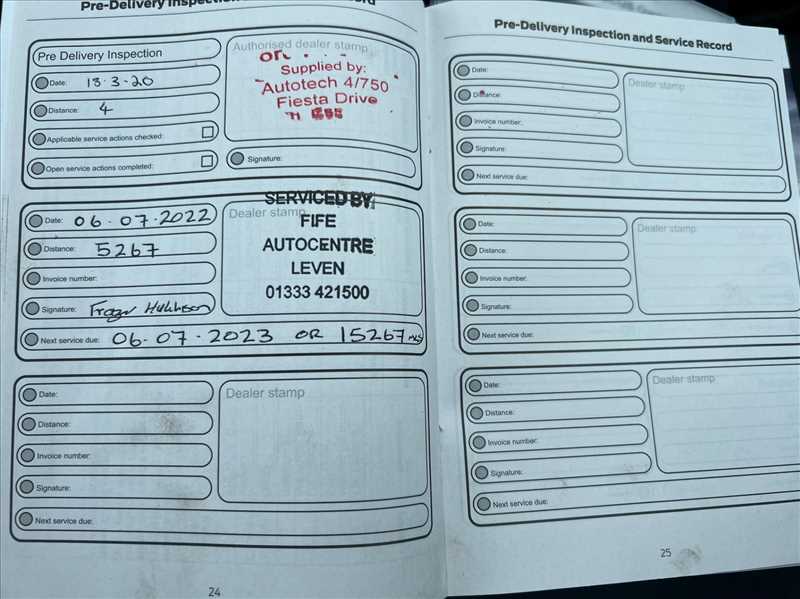 Pre-Delivery Inspection
Pre Delivery Inspection
Date: 13.3.20
Distance: 4
Applicable service actions checked:
Open service actions completed:
Authorised dealer stamp
Supplied by:
Autotech 4/750
Fiesta Drive
Signature:
Date: 06.07.2022
Distance: 5267
Invoice number:
Signature:
Next service due: 06.07.2023 OR 15267 MLS
Dealer stamp
SERVICED BY
FIFE
AUTOCENTRE
LEVEN
01333 421500
Date:
Distance:
Invoice number:
Signature:
Next service due:
Dealer stamp
24
Pre-Delivery Inspection and Service Record
Date:
Distance:
Invoice number:
Signature:
Next service due:
Dealer stamp
Date:
Distance:
Invoice number:
Signature:
Next service due:
Dealer stamp
Date:
Distance:
Invoice number:
Signature:
Next service due:
Dealer stamp
25